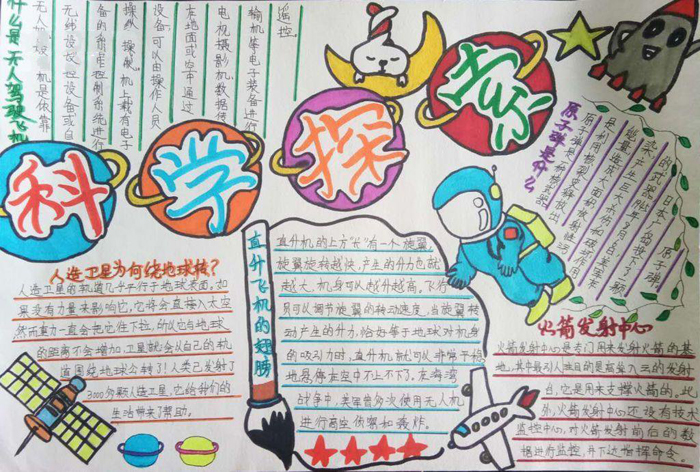 科学探索
什么是无人驾驶飞机
无人驾驶
机是依靠
无线设
控设备或自
备的
控制系统进行
操纵
操制。机上载有电子
设备,可以由操作人员
在地面或空中通过
电视摄影机、数据传
输机等电子装备进行
遥控。
原子弹是什么
人造卫星为何绕地球转?
人造卫星的轨道几乎平行于地球表面,如
果没有力量来影响它,它将会直接入太空
然而重力一直会把它往下拉,所以它与地球
的距离不会增加,卫星就会从自己的轨
道围绕地球公转了!人类已发射了
3000多颗人造卫星,它给我们的
生活带来了帮助。
直升飞机的翅膀
直升机的上方“长”有一个旋翼,
旋翼旋转越快,产生的升力也就
越大,机身可以越升越高,飞行
员可以调节旋翼的转动速度,当旋翼转
动产生的升力恰好等于地球对机身
的吸引力时,直升机就可以非常平稳
地悬停在空中不上不下了。在海湾
战争中,美军曾多次使用无人机
进行高空侦察和轰炸。
火箭发射中心
火箭发射中心是专门用来发射火箭的基
地,其中最引人注目的是高耸入云的发射
台,它是用来支撑火箭的,此
外,火箭发射中心还设有技术
监控中心,对火箭发射前后的数
据进行监控,并下达指挥命令。